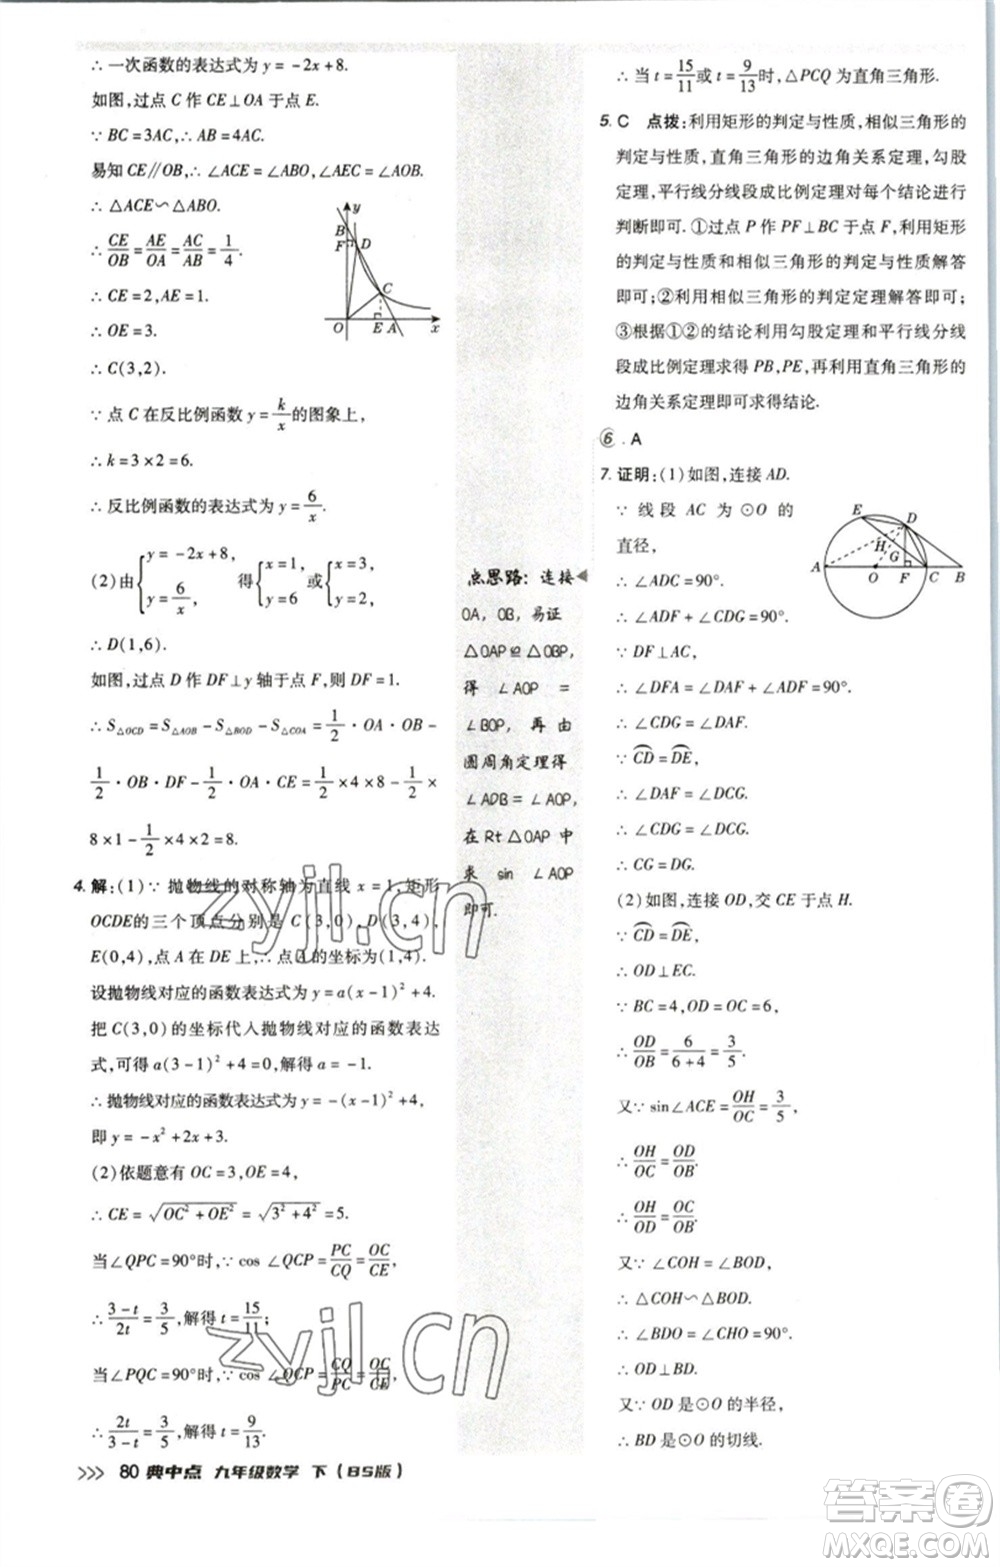 ∴一次函数的表达式为 y=-2x+8.
如图,过点 C 作 CE⊥OA 于点 E.
∵BC=3AC,∴AB=4AC.
易知 CE∥OB,∴∠ACE=∠ABO,∠AEC=∠AOB.
∴△ACE∽△ABO.
∴CE/OB=AE/OA=AC/AB=1/4.
∴CE=2,AE=1.
∴OE=3.
∴C(3,2).
y
B
F
D
C
O
E
A
x
∵点 C 在反比例函数 y=k/x的图象上,
∴k=3×2=6.
∴反比例函数的表达式为 y=6/x.
(2)由{y=-2x+8, y=6/x, 得{x=1, y=6 或{x=3, y=2.
∴D(1,6).
如图,过点 D 作 DF⊥y 轴于点 F,则 DF=1.
∴S△OCD=S△AOB-S△BOD-S△COA=1/2·OA·OB-
1/2·OB·DF-1/2·OA·CE=1/2×4×8-1/2×
8×1-1/2×4×2=8.
4. 解:(1)∵抛物线的对称轴为直线 x=1,矩形
OCDE的三个顶点分别是 C(3,0),D(3,4),
E(0,4),点 A 在 DE 上,∴点A的坐标为(1,4).
设抛物线对应的函数表达式为 y=a(x-1)²+4.
把 C(3,0)的坐标代入抛物线对应的函数表达
式,可得 a(3-1)²+4=0,解得 a=-1.
∴抛物线对应的函数表达式为 y=-(x-1)²+4,
即 y=-x²+2x+3.
(2)依题意有 OC=3,OE=4,
∴CE=√(OC²+OE²)=√(3²+4²)=5.
当∠QPC=90°时,∵cos ∠QCP=PC/CQ=OC/CE,
∴(3-t)/2t=3/5,解得 t=15/11;
当∠PQC=90°时,∵cos ∠QCP=CQ/PC=OC/CE,
∴2t/(3-t)=3/5,解得 t=9/13.
80 典中点 九年级数学 下(BS版)
点思路:连接
OA,OB,易证
△OAP≌△OBP,
得 ∠AOP =
∠BOP,再由
圆周角定理得
∠ADB=∠AOP,
在Rt△OAP中
求 sin ∠AOP
即可.
∴当 t=15/11或 t=9/13时,△PCQ 为直角三角形.
5. C 点拨:利用矩形的判定与性质,相似三角形的
判定与性质,直角三角形的边角关系定理,勾股
定理,平行线分线段成比例定理对每个结论进行
判断即可.①过点 P 作 PF⊥BC 于点 F,利用矩形
的判定与性质和相似三角形的判定与性质解答
即可;②利用相似三角形的判定定理解答即可;
③根据①②的结论利用勾股定理和平行线分线
段成比例定理求得 PB,PE,再利用直角三角形的
边角关系定理即可求得结论.
6. A
7. 证明:(1)如图,连接 AD.
∵线段 AC 为⊙O 的
直径,
∴∠ADC=90°.
∴∠ADF+∠CDG=90°.
E
D
H
G
A
O
F
C
B
∵DF⊥AC,
∴∠DFA=∠DAF+∠ADF=90°.
∴∠CDG=∠DAF.
∵⌒CD=⌒DE,
∴∠DAF=∠DCG.
∴∠CDG=∠DCG.
∴CG=DG.
(2)如图,连接 OD,交 CE 于点 H.
∵⌒CD=⌒DE,
∴OD⊥EC.
∵BC=4,OD=OC=6,
∴OD/OB=6/(6+4)=3/5.
又∵sin∠ACE=OH/OC=3/5,
∴OH/OC=OD/OB.
∴OH/OD=OC/OB.
又∵∠COH=∠BOD,
∴△COH∽△BOD.
∴∠BDO=∠CHO=90°.
∴OD⊥BD.
又∵OD 是⊙O 的半径,
∴BD 是⊙O 的切线.
zyjl.cn
zyjl.cn
答案圈
MXQE.COM